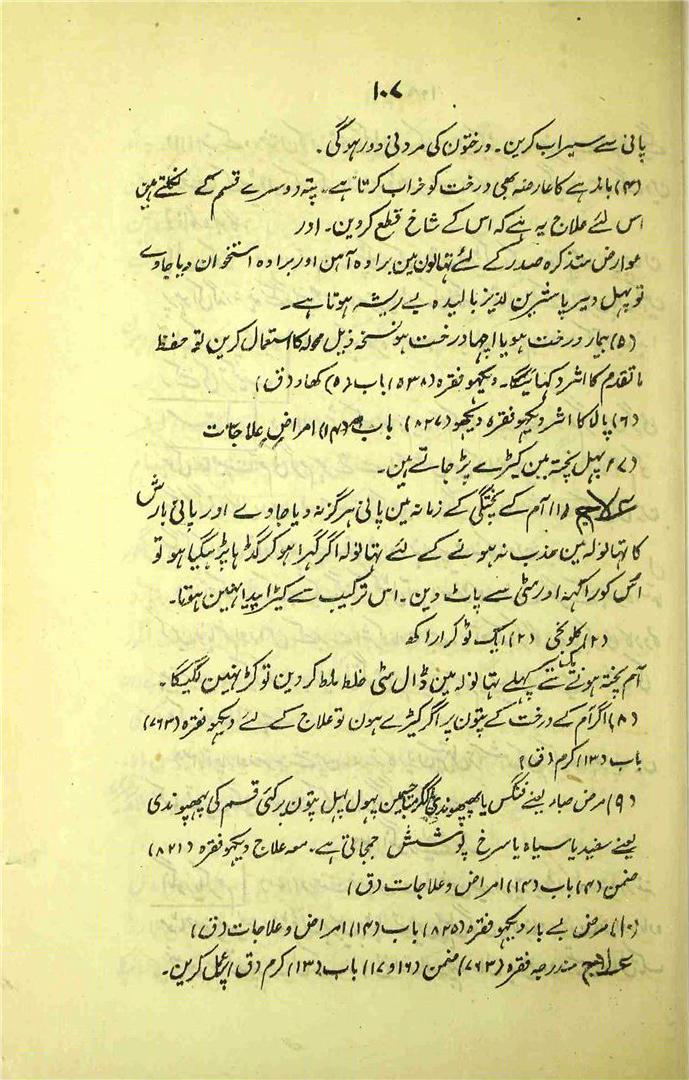 ۱۰۷
پانی سے سیراب کرین۔ درختون کی مردنی دور ہوگی۔
(۴) بانڈہے کا عارضہ بھی درخت کو خراب کرتا ہے۔ پتہ دوسرے قسم کے نکلتے ہین
اس لئے علاج یہ ہے کہ اس کے شاخ قطع کردین۔ اور
عوارض متذکرہ صدر کے لئے تہالون مین برادہ آہن اور برادہ استخوان دیا جاوے
تو پہل دیرپا شیرین لذیز بالیدہ بے ریشہ ہوتا ہے۔
(۵) بیمار درخت ہو یا اچہا درخت ہو نسخہ ذیل محولہ کا استعمال کرین تو حفظ
ماتقدم کا اثر دکہائیگا۔ دیکہو فقرہ (۵۳۸) باب (۵) کھاد (ق)
(۶) پالا کا اثر دیکہو فقرہ دیکہو (۸۲۷) باب (۱۴) امراض علاجات
(۷) پہل پختہ مین کیڑے پڑ جاتے ہین۔
علاج (۱) آم کے پختگی کے زمانہ مین پانی ہرگز نہ دیا جاوے اور پانی بارش
کا تہانولہ مین جذب نہ ہونے کے لئے تہانولہ اگر گہرا ہو کر گڈہا پڑ گیا ہو تو
اسکو راکہہ اور مٹی سے پاٹ دین۔ اس ترکیب سے کیڑا پیدا نہین ہوتا۔
(۲) کلونجی (۲) ایک ٹوکرا راکھ
آم پختہ ہونے سے پہلے تہانولہ مین ڈال مٹی خلط ملط کر دین تو کڑ نہین لگیگا۔
(۸) اگر آم کے درخت کے پتون پر اگر کیڑے ہون تو علاج کے لئے دیکہو فقرہ (۷۶۳)
باب (۱۳) کرم (ق)
(۹) مرض صباء یعنے فنگس یا بھپھوندی جسمین پہول پہل پتون پر کئی قسم کی پہپوندی
یعنے سفید یا سیاہ یا سرخ پوشش جمجاتی ہے۔ معہ علاج دیکہو فقرہ (۸۲۱)
ضمن (۴) باب (۱۴) امراض وعلاجات (ق)
(۱۰) مرض بے بار دیکہو فقرہ (۸۲۵) باب (۱۴) امراض وعلاجات (ق)
علاج مندرجہ فقرہ (۷۶۳) ضمن (۱۶ و ۱۷) باب (۱۳) کرم (ق) پر عمل کرین۔